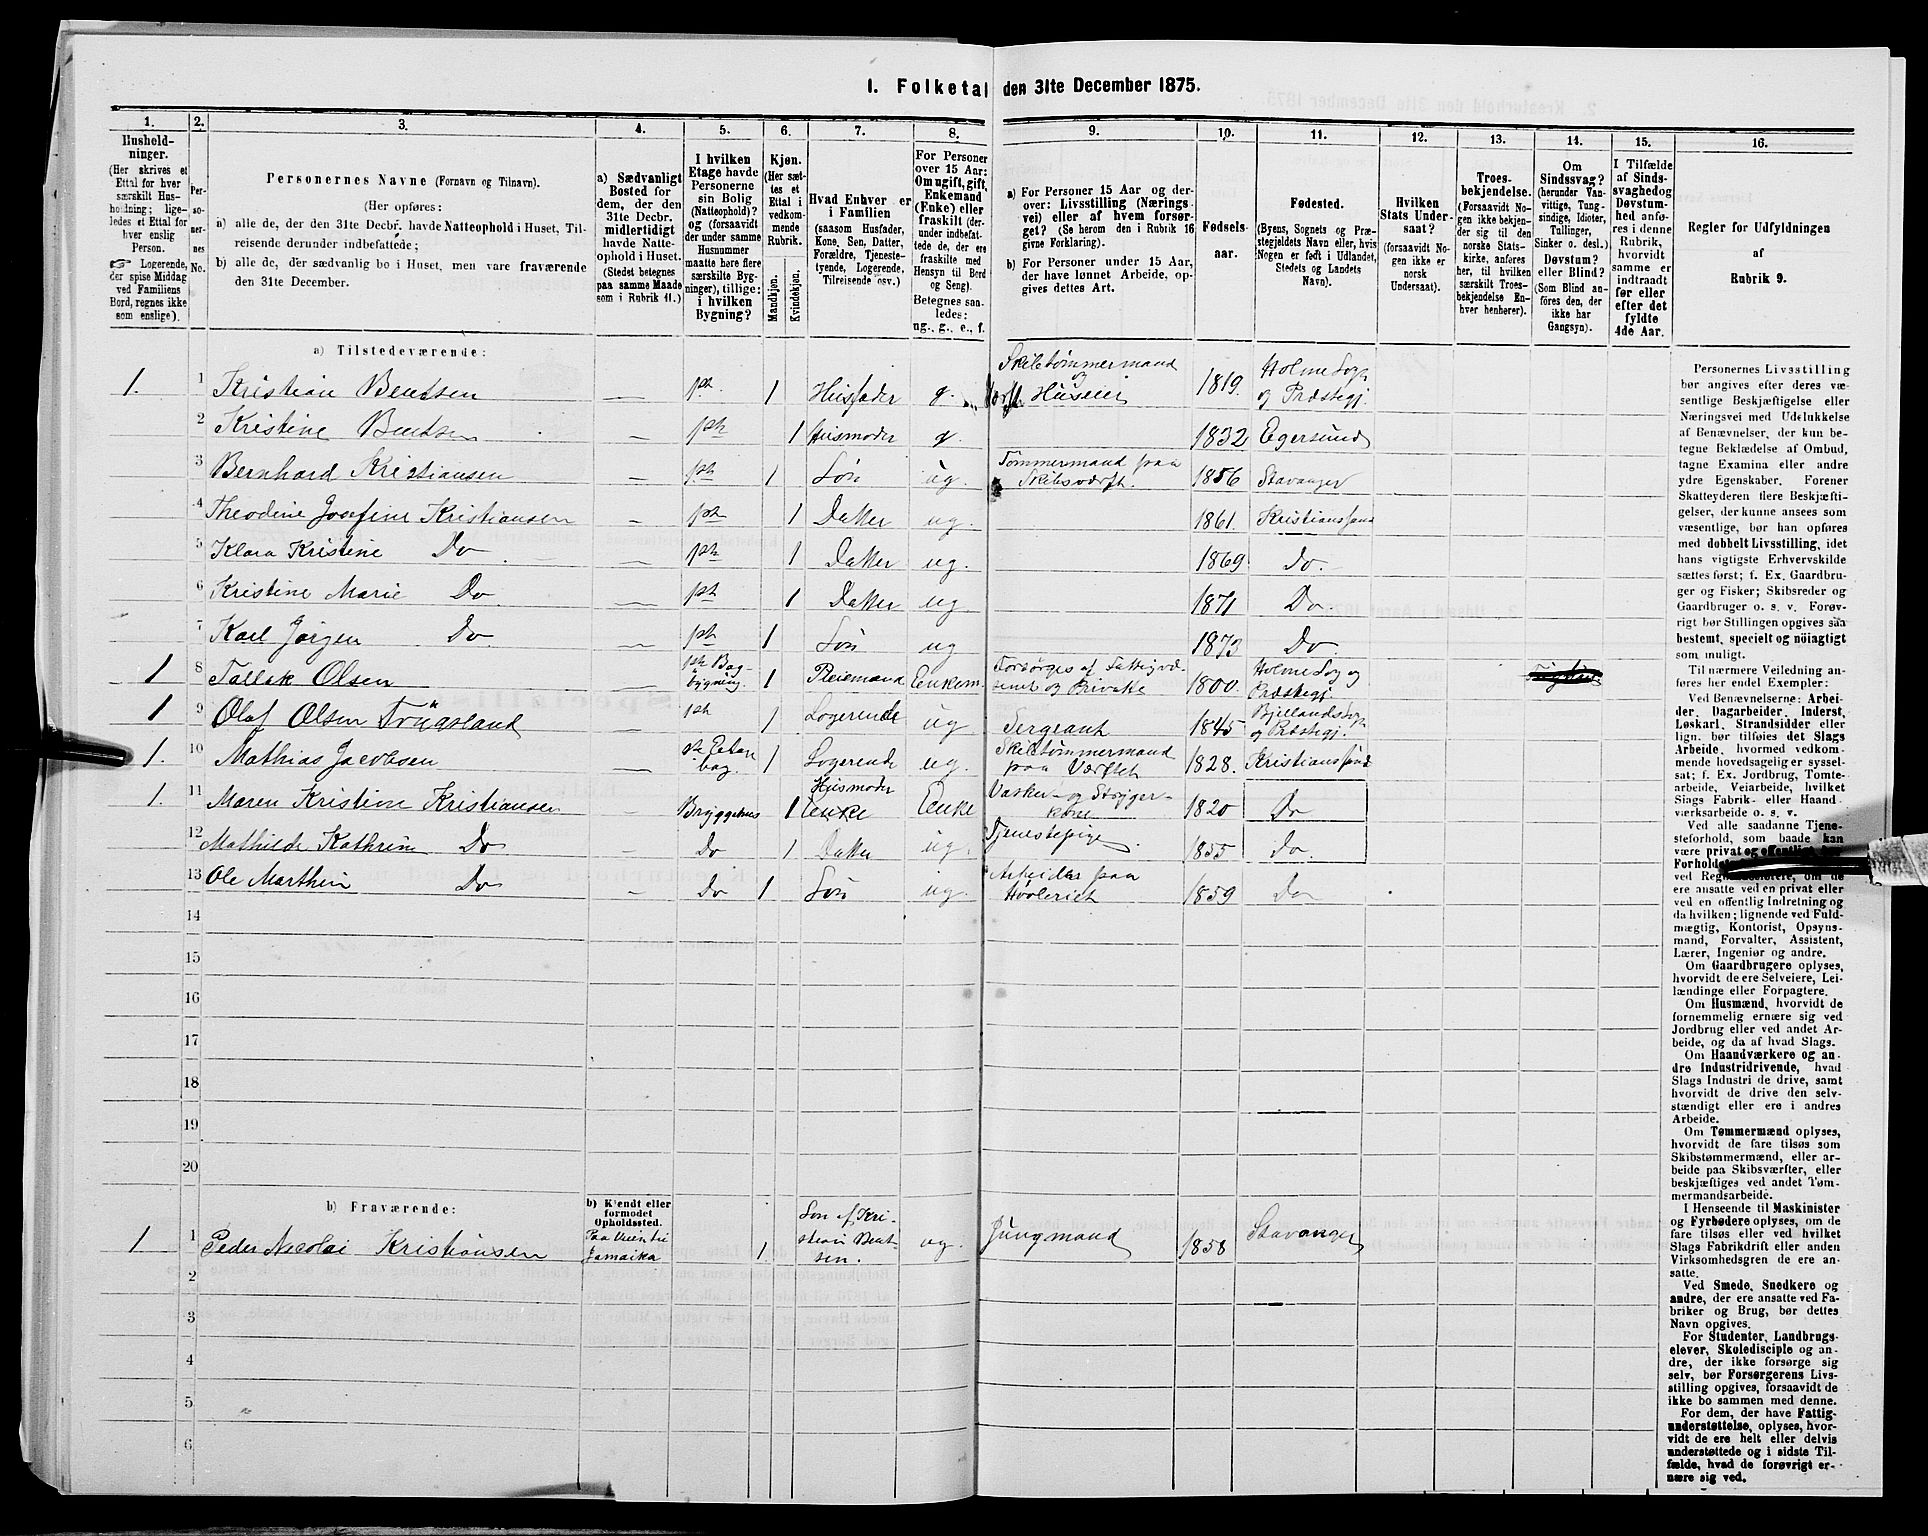 I. Folketal den 31te December 1875.
1. 2. 3. 4. 5. 6. 7. 8. 9. 10. 11. 12. 13. 14. 15. 16.
Hushold-
ninger.
(Her skrives et
Ettal for hver
særskilt Hus-
holdning; lige-
ledes et Ettal for
hver enslig
Person.
☞ Logerende,
der spise Middag
ved Familiens
Bord, regnes ikke
som enslige).
Per-
so-
ner-
nes
No.
Personernes Navne (Fornavn og Tilnavn).
(Her opføres:
a) alle de, der den 31te Decbr. havde Natteophold i Huset, Til-
reisende derunder indbefattede;
b) alle de, der sædvanlig bo i Huset, men vare fraværende
den 31te December.
a) Sædvanligt
Bosted for
dem, der den
31te Decbr.
midlertidigt
havde Natte-
ophold i Huset.
(Stedet betegnes
paa samme Maade
som i Rubrik 11.)
I hvilken
Etage havde
Personerne
sin Bolig
(Natteophold)?
og (forsaavidt
der under samme
Husnummer
maatte høre flere
særskilte Byg-
ninger), tillige:
i hvilken
Bygning?
Kjøn.
(Her sæt-
tes et
Ettal i
vedkom-
mende
Rubrik.
Mandkjøn.
Kvindekjøn.
Hvad Enhver er
i Familien
(saasom Husfader,
Kone, Søn, Datter,
Forældre, Tjeneste-
tyende, Logerende,
Tilreisende osv.)
For Personer
over 15 Aar:
Om ugift, gift,
Enkemand
(Enke) eller
fraskilt (der-
under indbefat-
tede de, der ere
fraskilte med
Hensyn til Bord
og Seng).
Betegnes saa-
ledes:
ug., g., e., f.
a) For Personer 15 Aar og der-
over: Livsstilling (Nærings-
vei) eller af hvem forsør-
get? (Se herom den i Rubrik 16
givne Forklaring).
b) For Personer under 15 Aar,
der have lønnet Arbeide, op-
gives dettes Art.
Fødsels-
aar.
Fødested.
(Byens, Sognets og Præ-
stegjeldets Navn eller, hvis
Nogen er født i Udlandet,
Stedets og Landets
Navn).
Hvilken
Stats Under-
saat?
(forsaavidt No-
gen ikke er
norsk
Undersaat).
Troes-
bekjendelse.
(Forsaavidt No-
gen ikke bekjen-
der sig til den
norske Stats-
kirke, anføres
her, til hvilken
særskilt Troes-
bekjendelse En-
hver henhører).
Om
Sindssvag?
(herunder Van-
vittige, Tung-
sindige, Idioter,
Tullinger,
Sinker o. desl.)
Døvstum?
eller Blind?
(Som Blind an-
føres den, der
ikke har
Gangsyn).
I Tilfælde
af Sinds-
svaghed og
Døvstum-
hed anfø-
res i denne
Rubrik,
hvorvidt
samme er
indtraadt
før eller
efter det
fyldte
4de Aar.
Regler for Udfyldningen
af
Rubrik 9.
a) Tilstedeværende:
1. 1 Kristian Bentsen — 1ste 1 Husfader g. Skibstømmermand og Huseier 1819. Holme Sogn og Præstegj.
2 Kristine Bentsen — 1ste 1 Husmoder g. 1832 Egersund
3 Bernhard Kristiansen — 1ste 1 Søn ug. Tømmermand paa Skibsværft. 1856 Stavanger
4 Theodine Josefine Kristiansen — 1ste 1 Datter ug. 1861. Kristianssand
5 Klara Kristine Do — 1ste 1 Datter ug. 1869 Do.
6 Kristine Marie Do — 1ste 1 Datter ug. 1871 Do.
7 Karl Jørgen Do — 1ste 1 Søn ug 1873 Do.
1 8 Tallak Olsen — 1ste Bag-bygning 1 Pleiemand Eenkem. Forsørges af Fattigvæ-senet og Private 1800. Holme Sog og Præstegj.
1 9 Olaf Olsen Trygsland — 1ste 1 Logerende ug Sergeant 1845 Bjellands Sogn og Præstegj.
1. 10 Mathias Jacobsen — 1 Logerende ug. Skibstømmermand paa Værftet 1828. Kristianssand
1. 11 Maren Kristine Kristiansen Bryggehus 1 Husmoder Eenke Eenke Vasker- og Strygerkone 1820 Do
12 Mathilde Kathrine Do — Do 1 Datter ug. Tjenestepige 1855 Do.
13 Ole Marthin Do — Do 1 Søn ug. Arbeider paa Høvleriet 1859 Do
14
15
16
17
18
19
20
b) Fraværende:
b) Kjendt eller
formodet
Opholdssted.
1 1 Peder Nicolai Kristiansen Jamaika 1. Søn af Kristian Bentsen. ug. Jungmand 1858 Stavanger
2
3
4
5
6
Personernes Livsstilling
bør angives efter deres væ-
sentlige Beskjæftigelse eller
Næringsvei med Udelukkelse
af Benævnelser, der kun be-
tegne Beklædelse af Ombud,
tagne Examina eller andre
ydre Egenskaber. Forener
Skatteyderen flere Beskjæfti-
gelser, der kunne ansees som
væsentlige, bør han opføres
med dobbelt Livsstilling, idet
hans vigtigste Erhvervskilde
sættes først; f. Ex. Gaardbru-
ger og Fisker; Skibsreder og
Gaardbruger o. s. v. Forøv-
rigt bør Stillingen opgives saa
bestemt, specielt og nöiagtigt
som muligt.
Til nærmere Veiledning an-
føres her endel Exempler:
Ved Benævnelserne: Arbei-
der, Dagarbeider, Inderst,
Løskarl, Strandsidder eller
lign. bør tilføies det Slags
Arbeide, hvormed vedkom-
mende hovedsagelig er syssel-
sat; f. Ex. Jordbrug, Tomte-
arbeide, Veiarbeide, hvilket
Slags Fabrik- eller Haand-
værksarbeide o. s. v.
Ved alle saadanne Tjene-
steforhold, som baade kan
være privat og offentligt,
Forholdets
ved Regnskabsførere, om de
ere ansatte ved en privat eller
ved en offentlig Indretning og
da hvilken; lignende ved Fuld-
mægtig, Kontorist, Opsyns-
mand, Forvalter, Assistent,
Lærer, Ingeniør og andre.
Om Gaardbrugere oplyses,
hvorvidt de ere Selveiere, Lei-
lændinge eller Forpagtere.
Om Husmænd, hvorvidt de
fornemmelig ernære sig ved
Jordbrug eller ved andet Ar-
beide, og da af hvad Slags.
Om Haandværkere og an-
dre Industridrivende, hvad
Slags Industri de drive, samt
hvorvidt de drive den selv-
stændigt eller ere i andres
Arbeide.
Om Tømmermænd oplyses,
hvorvidt de fare tilsøs som
Skibstømmermænd, eller ar-
beide paa Skibsværfter, eller
beskjæftiges ved andet Tøm-
mermandsarbeide.
I Henseende til Maskinister
og Fyrbødere oplyses, om de
fare tilsøs eller ved hvilket
Slags Fabrikdrift eller anden
Virksomhedsgren de ere an-
satte.
Ved Smede, Snedkere og
andre, der ere ansatte ved Fa-
briker og Brug, bør dettes
Navn opgives.
For Studenter, Landbrugs-
elever, Skoledisciple og an-
dre, der ikke forsørge sig
selv, bør Forsørgerens Livs-
stilling opgives, forsaavidt de
ikke bo sammen med denne.
For dem, der have Fattig-
understøttelse, oplyses, hvor-
vidt de ere helt eller delvis
understøttede og i sidste Til-
fælde, hvad de forøvrigt er-
nære sig ved.